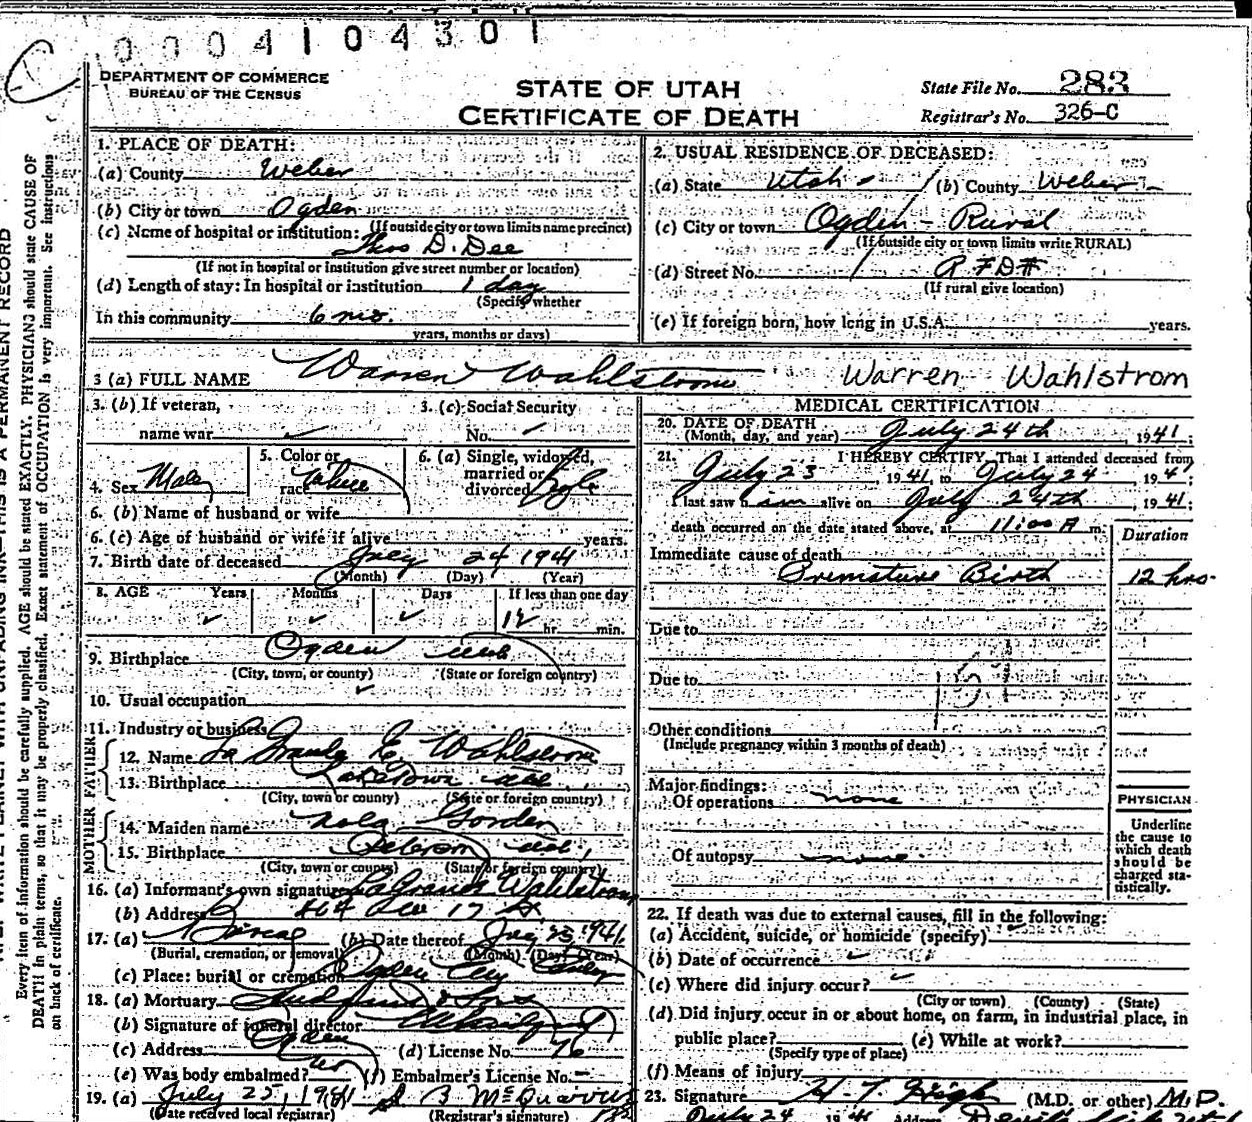 0004104301
DEPARTMENT OF COMMERCE
BUREAU OF THE CENSUS
STATE OF UTAH
CERTIFICATE OF DEATH
State File No. 283
Registrar's No. 326-C
1. PLACE OF DEATH:
(a) County Weber
(b) City or town Ogden
(If outside city or town limits name precinct)
(c) Name of hospital or institution:
Thos D. Dee
(If not in hospital or institution give street number or location)
(d) Length of stay: In hospital or institution 1 day
(Specify whether
In this community 6 mo.
years, months or days)
2. USUAL RESIDENCE OF DECEASED:
(a) State Utah (b) County Weber
(c) City or town Ogden - Rural
(If outside city or town limits write RURAL)
(d) Street No. RFD#
(If rural give location)
(e) If foreign born, how long in U.S.A. years.
3 (a) FULL NAME Warren Wahlstrom Warren Wahlstrom
3. (b) If veteran,
name war
3. (c) Social Security
No.
4. Sex Male
5. Color or
race White
6. (a) Single, widowed,
married or
divorced
6. (b) Name of husband or wife
6. (c) Age of husband or wife if alive years.
7. Birth date of deceased July 24 1941
(Month) (Day) (Year)
8. AGE Years Months Days If less than one day
12 hr. min.
9. Birthplace Ogden Utah
(City, town, or county) (State or foreign country)
10. Usual occupation
11. Industry or business
FATHER
12. Name La Grande Wahlstrom
13. Birthplace Laketown Utah
(City, town or county) (State or foreign country)
MOTHER
14. Maiden name Nola Gorden
15. Birthplace Utah
(City, town or county) (State or foreign country)
16. (a) Informant's own signature La Grande Wahlstrom
(b) Address 17 St.
17. (a) Burial (b) Date thereof July 25, 1941
(Burial, cremation, or removal) (Month) (Day) (Year)
(c) Place: burial or cremation Ogden City
18. (a) Mortuary & Sons
(b) Signature of funeral director
(c) Address Ogden (d) License No. 76
(e) Was body embalmed? no (f) Embalmer's License No.
19. (a) July 25, 1941
(Date received local registrar) (Registrar's signature)
MEDICAL CERTIFICATION
20. DATE OF DEATH
(Month, day, and year) July 24th, 1941.
21. I HEREBY CERTIFY, That I attended deceased from
July 23, 1941, to July 24, 194 ;
I last saw him alive on July 24th, 1941;
death occurred on the date stated above, at 11:00 A m.
Duration
Immediate cause of death
Premature Birth 12 hrs.
Due to
Due to
Other conditions
(Include pregnancy within 3 months of death)
Major findings:
Of operations none
Of autopsy none
PHYSICIAN
Underline
the cause to
which death
should be
charged sta-
tistically.
22. If death was due to external causes, fill in the following:
(a) Accident, suicide, or homicide (specify)
(b) Date of occurrence
(c) Where did injury occur?
(City or town) (County) (State)
(d) Did injury occur in or about home, on farm, in industrial place, in
public place? (e) While at work?
(Specify type of place)
(f) Means of injury
23. Signature (M.D. or other) M.D.
July 24 1941 Address
Every item of information should be carefully supplied. AGE should be stated EXACTLY. PHYSICIANS should state CAUSE OF
DEATH in plain terms, so that it may be properly classified. Exact statement of OCCUPATION is very important. See instructions
on back of certificate.
THIS IS A PERMANENT RECORD